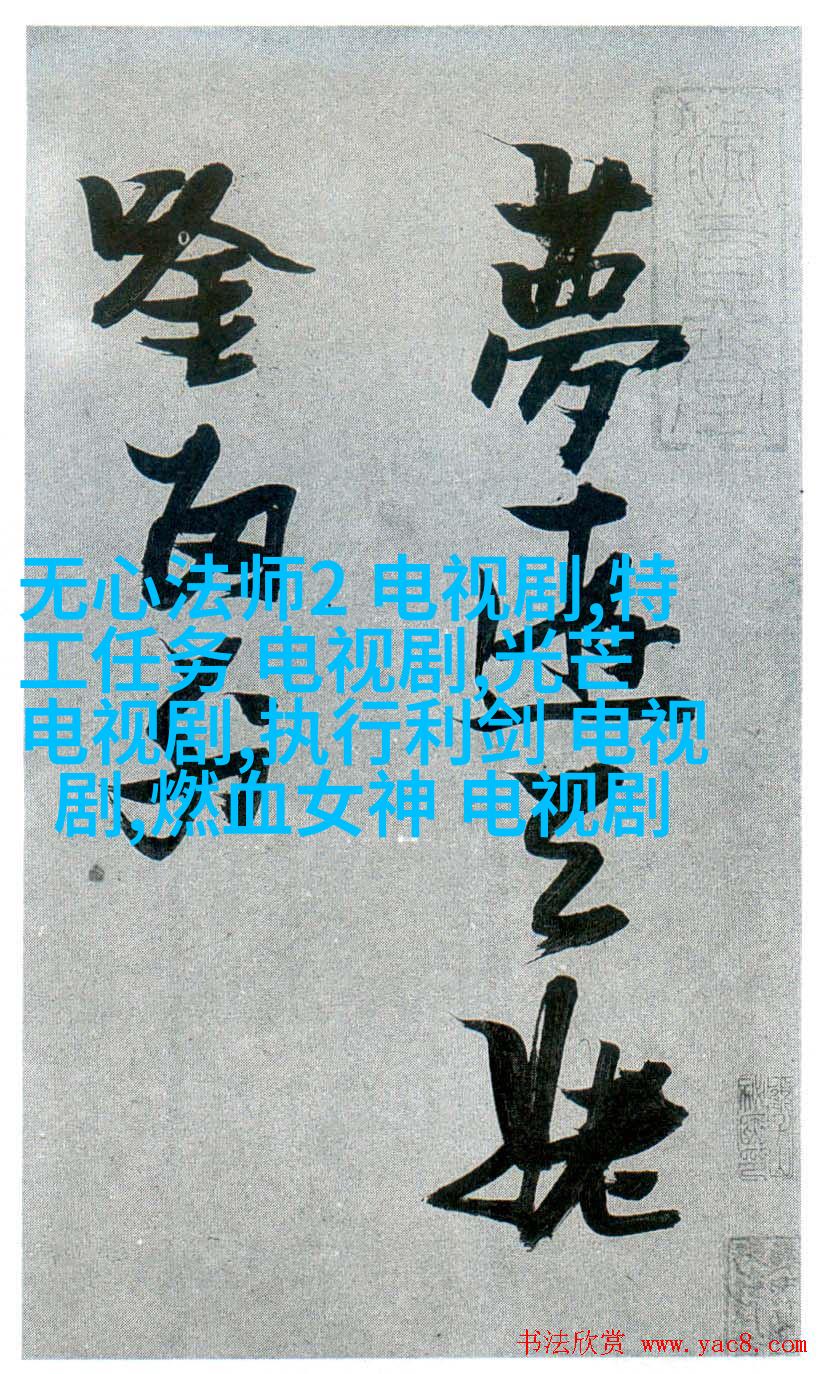 夢遊天姥
唫留別
无心法师2 电视剧,特
工任务 电视剧,光芒
电视剧,执行利剑 电视
剧,燃血女神 电视剧
书法欣赏 www.yac8.com